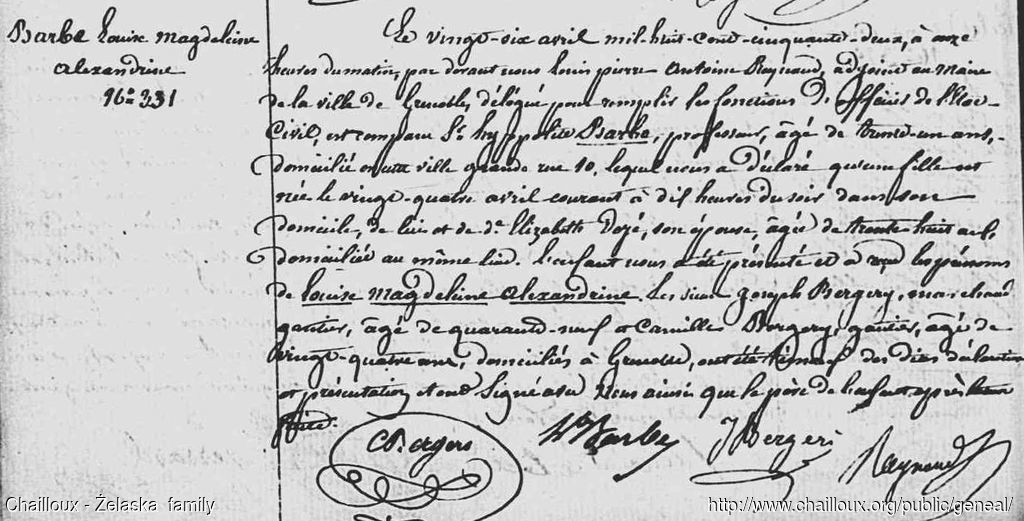 Barbe Louise Magdeleine
Alexandrine
N° 331
Le vingt-six avril mil-huit-cent-cinquante-deux, à onze
heures du matin, par devant nous Louis pierre Antoine Raynaud, adjoint au Maire
de la ville de Grenoble, délégué pour remplir les fonctions d'officier de l'Etat-
Civil, est comparu Sr. hyppolite Barbe, professeur, âgé de trente-un ans,
domicilié en cette ville grande rue 10, lequel nous a déclaré qu'une fille est
née le vingt-quatre avril courant à dix heures du soir dans son
domicile, de lui et de de. Elizabeth Dozé, son épouse, âgée de trente-huit ans,
domiciliée au même lieu. L'enfant nous a été présenté et a reçu les prénoms
de Louise Magdeleine Alexandrine. Les sieurs Joseph Bergery, marchand
gantier, âgé de quarante-neuf et Camille Bergery, gantier, âgé de
vingt-quatre ans, domiciliés à Grenoble, ont été témoins des dites déclaration
et présentation et ont signé avec Nous ainsi que le père de l'enfant après lecture
faite.
CBergery
hte Barbe
JBergeri
Raynaud
Chailloux - Żelaska family
http://www.chailloux.org/public/geneal/